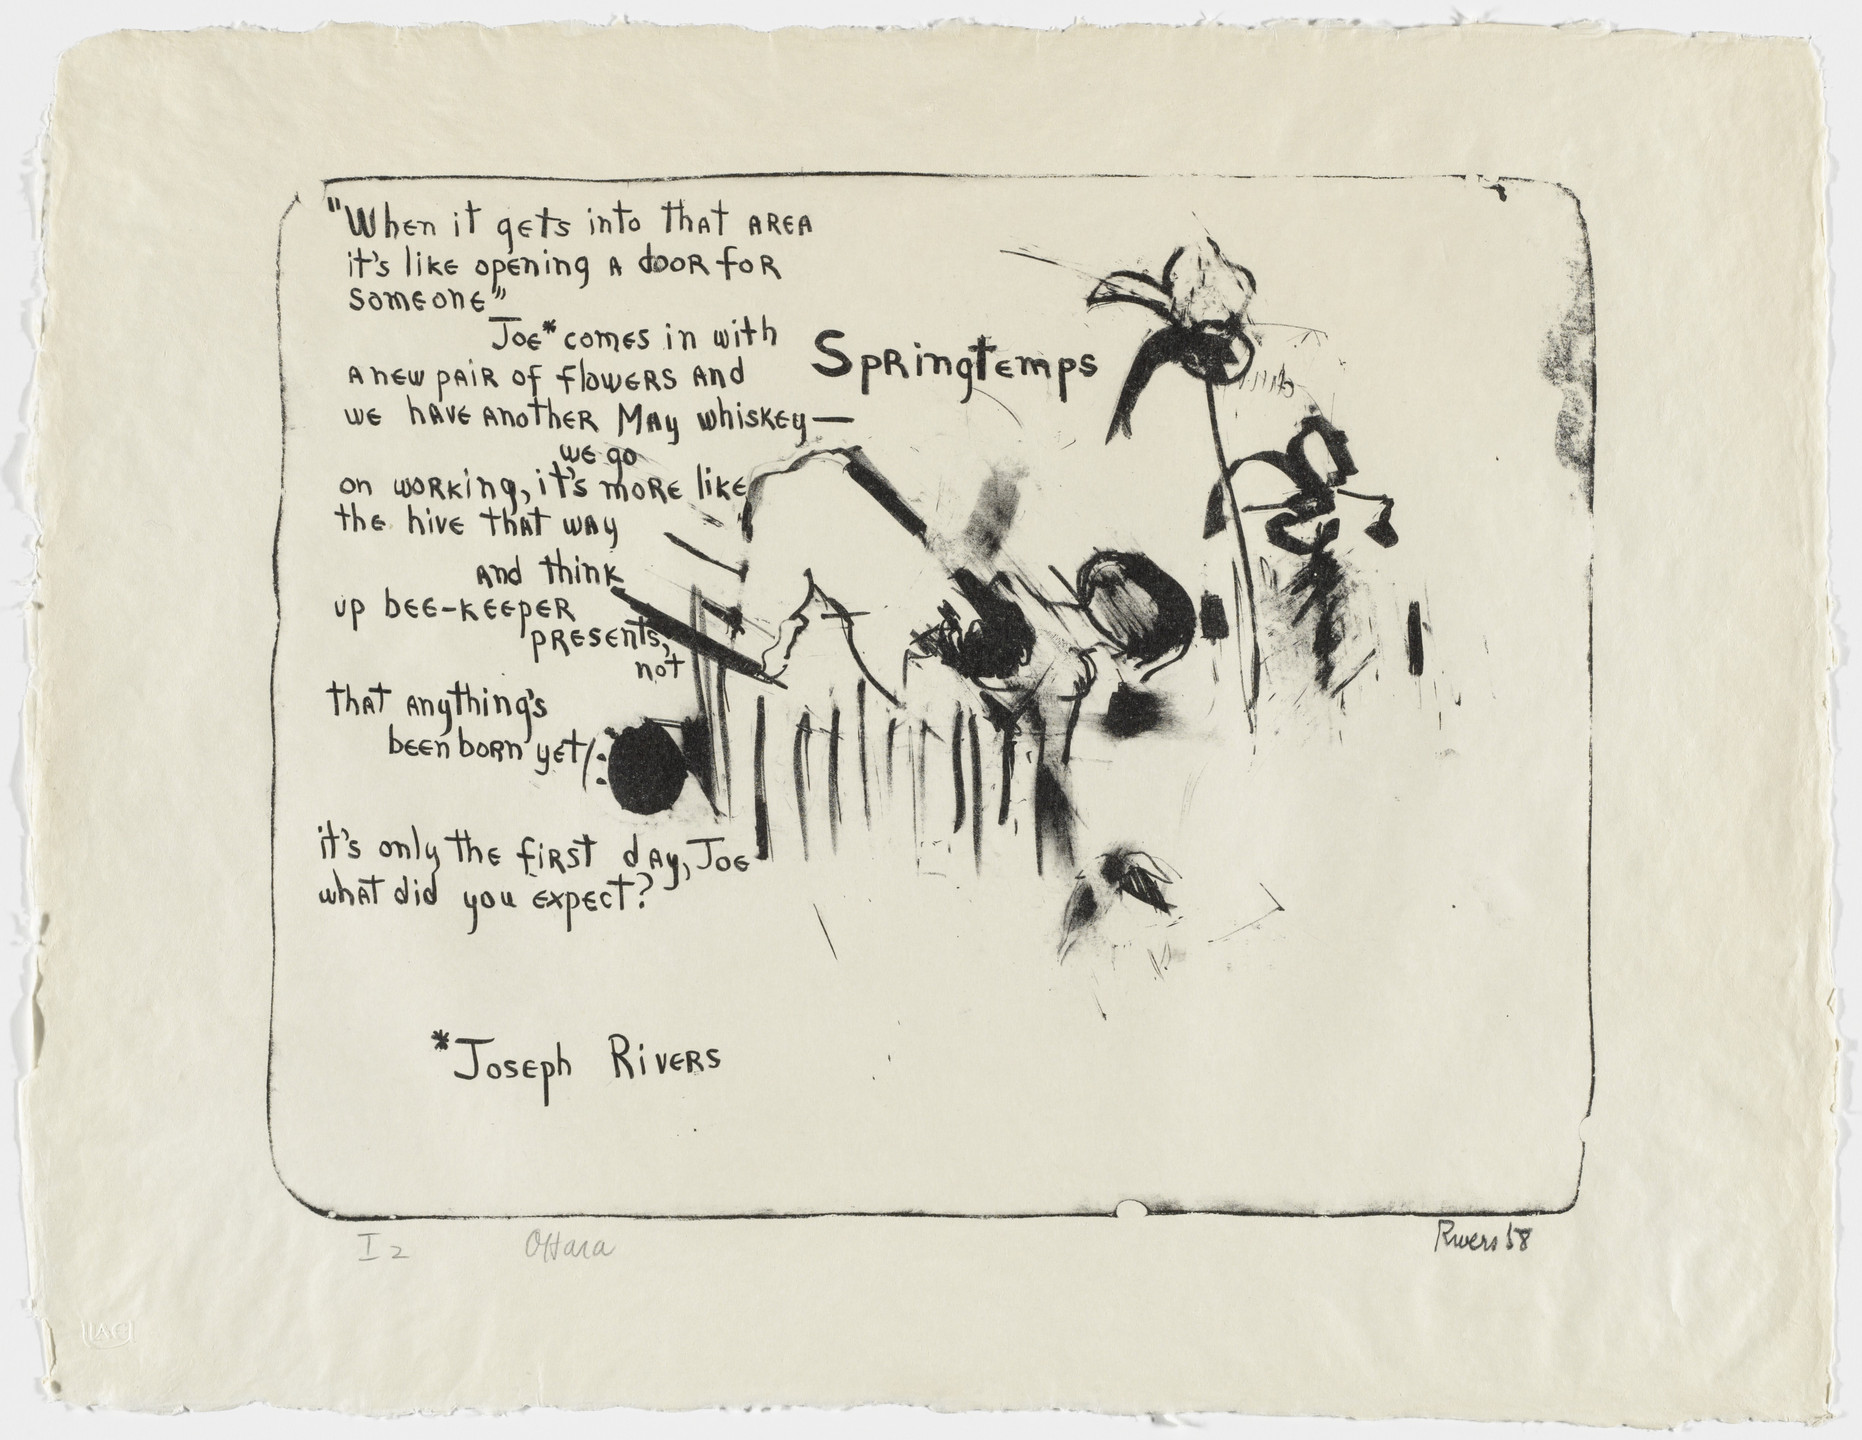 "When it gets into that area
it's like opening a door for
someone"
Joe* comes in with
a new pair of flowers and
we have another May whiskey—
we go
on working, it's more like
the hive that way
and think
up bee-keeper
presents,
not
that anything's
been born yet/:
it's only the first day, Joe
what did you expect?
Springtemps
*Joseph Rivers
I 2 OHara Rivers '58